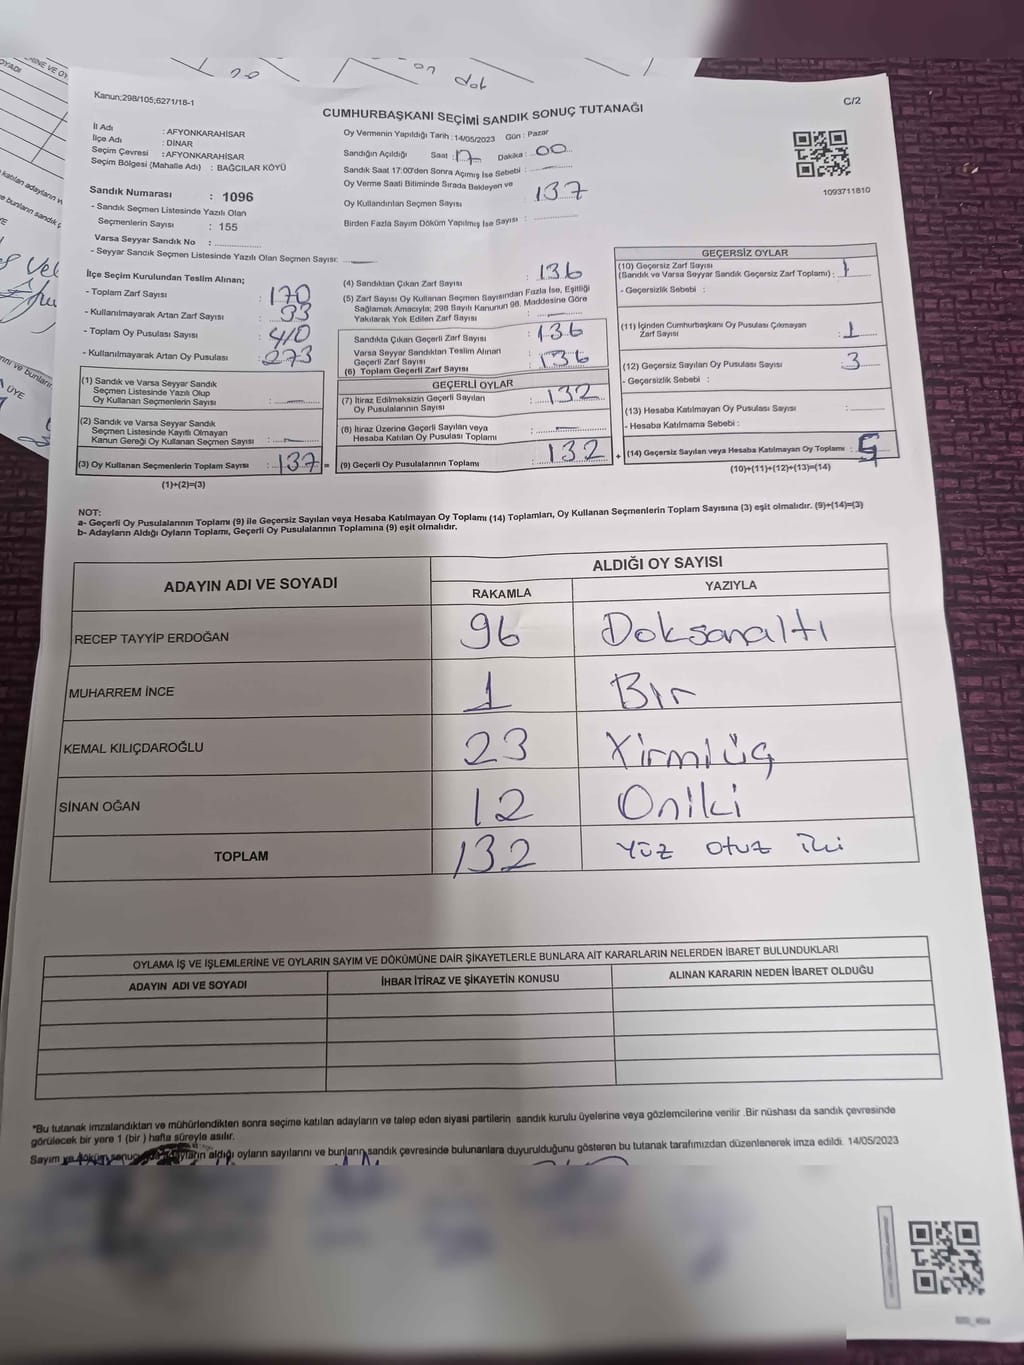 Kanun;298/105;6271/18-1
CUMHURBAŞKANI SEÇİMİ SANDIK SONUÇ TUTANAĞI
C/2
İl Adı : AFYONKARAHİSAR
İlçe Adı : DİNAR
Seçim Çevresi : AFYONKARAHİSAR
Seçim Bölgesi (Mahalle Adı) : BAĞCILAR KÖYÜ
Sandık Numarası : 1096
- Sandık Seçmen Listesinde Yazılı Olan
Seçmenlerin Sayısı : 155
Varsa Seyyar Sandık No :
- Seyyar Sandık Seçmen Listesinde Yazılı Olan Seçmen Sayısı:
Oy Vermenin Yapıldığı Tarih : 14/05/2023 Gün : Pazar
Sandığın Açıldığı Saat : 17 Dakika : 00
Sandık Saat 17:00'den Sonra Açımış İse Sebebi :
Oy Verme Saati Bitiminde Sırada Bekleyen ve
Oy Kullandırılan Seçmen Sayısı : 137
Birden Fazla Sayım Döküm Yapılmış İse Sayısı :
1093711810
İlçe Seçim Kurulundan Teslim Alınan;
- Toplam Zarf Sayısı : 170
- Kullanılmayarak Artan Zarf Sayısı : 33
- Toplam Oy Pusulası Sayısı : 410
- Kullanılmayarak Artan Oy Pusulası : 273
(1) Sandık ve Varsa Seyyar Sandık
Seçmen Listesinde Yazılı Olup
Oy Kullanan Seçmenlerin Sayısı :
(2) Sandık ve Varsa Seyyar Sandık
Seçmen Listesinde Kayıtlı Olmayan
Kanun Gereği Oy Kullanan Seçmen Sayısı :
(3) Oy Kullanan Seçmenlerin Toplam Sayısı : 137 =
(1)+(2)=(3)
(4) Sandıktan Çıkan Zarf Sayısı : 136
(5) Zarf Sayısı Oy Kullanan Seçmen Sayısından Fazla İse, Eşitliği
Sağlamak Amacıyla; 298 Sayılı Kanunun 98. Maddesine Göre
Yakılarak Yok Edilen Zarf Sayısı :
Sandıkta Çıkan Geçerli Zarf Sayısı : 136
Varsa Seyyar Sandıktan Teslim Alınan
Geçerli Zarf Sayısı : 136
(6) Toplam Geçerli Zarf Sayısı
GEÇERLİ OYLAR
(7) İtiraz Edilmeksizin Geçerli Sayılan
Oy Pusulasının Sayısı : 132
(8) İtiraz Üzerine Geçerli Sayılan veya
Hesaba Katılan Oy Pusulası Toplamı :
(9) Geçerli Oy Pusulalarının Toplamı : 132 +
GEÇERSİZ OYLAR
(10) Geçersiz Zarf Sayısı
(Sandık ve Varsa Seyyar Sandık Geçersiz Zarf Toplamı) : 1
- Geçersizlik Sebebi :
(11) İçinden Cumhurbaşkanı Oy Pusulası Çıkmayan
Zarf Sayısı : 1
(12) Geçersiz Sayılan Oy Pusulası Sayısı : 3
- Geçersizlik Sebebi :
(13) Hesaba Katılmayan Oy Pusulası Sayısı :
- Hesaba Katılmama Sebebi :
(14) Geçersiz Sayılan veya Hesaba Katılmayan Oy Toplamı : 5
(10)+(11)+(12)+(13)=(14)
NOT:
a- Geçerli Oy Pusulalarının Toplamı (9) ile Geçersiz Sayılan veya Hesaba Katılmayan Oy Toplamı (14) Toplamları, Oy Kullanan Seçmenlerin Toplam Sayısına (3) eşit olmalıdır. (9)+(14)=(3)
b- Adayların Aldığı Oyların Toplamı, Geçerli Oy Pusulalarının Toplamına (9) eşit olmalıdır.
ADAYIN ADI VE SOYADI
ALDIĞI OY SAYISI
RAKAMLA YAZIYLA
RECEP TAYYİP ERDOĞAN 96 Doksanaltı
MUHARREM İNCE 1 Bir
KEMAL KILIÇDAROĞLU 23 Yirmiüç
SİNAN OĞAN 12 Oniki
TOPLAM 132 Yüz otuz iki
OYLAMA İŞ VE İŞLEMLERİNE VE OYLARIN SAYIM VE DÖKÜMÜNE DAİR ŞİKAYETLERLE BUNLARA AİT KARARLARIN NELERDEN İBARET BULUNDUKLARI
ADAYIN ADI VE SOYADI İHBAR İTİRAZ VE ŞİKAYETİN KONUSU ALINAN KARARIN NEDEN İBARET OLDUĞU
*Bu tutanak imzalandıktan ve mühürlendikten sonra seçime katılan adayların ve talep eden siyasi partilerin sandık kurulu üyelerine veya gözlemcilerine verilir .Bir nüshası da sandık çevresinde
görülecek bir yere 1 (bir ) hafta süreyle asılır.
Sayım ve döküm sonucunda adayların aldığı oyların sayılarını ve bunların sandık çevresinde bulunanlara duyurulduğunu gösteren bu tutanak tarafımızdan düzenlenerek imza edildi. 14/05/2023